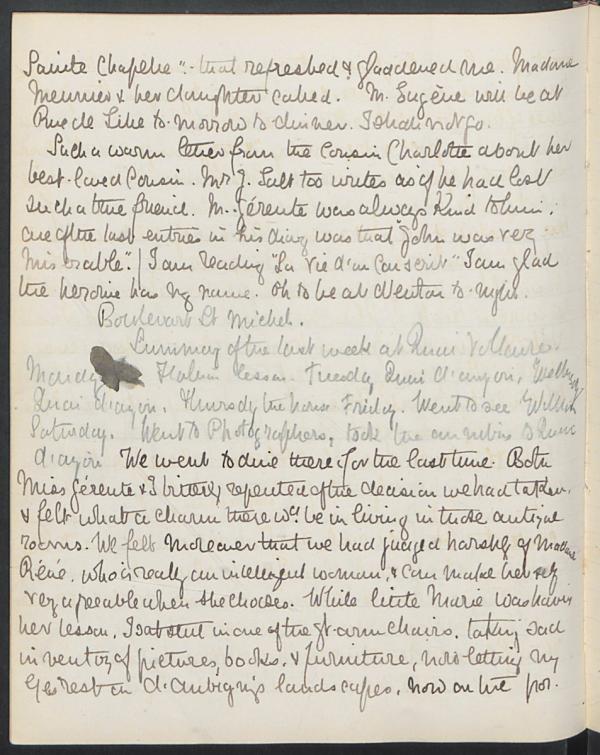 Sainte Chapelle": that refreshed & gladdened me. Madame
Meunier & her daughter called. M. Eugène will be at
Rue de Lille to-morrow to dinner. I shall not go.
Such a warm letter from the Cousin Charlotte about her
best-loved Cousin. Mr J. Salt too writes as if he had lost
such a true friend. M. Gérente was always kind to him;
one of the last entries in his diary was that "John was very
miserable". / I am reading "La Vie d'un Conscrit" I am glad
the heroine has my name. Oh to be at Denton to-night.
Boulevart St Michel.
Summary of the last week at Quai Voltaire.
Monday Italian lesson. Tuesday Quai d'anjou,
Quai d'anjou. Thursday the house Friday. Went to see
Saturday. Went to Photographers, took the to Quai
d'anjou We went to dine there for the last time. Both
Miss Gérente & I bitterly repented of the decision we had taken,
& felt what a charm there wd be in living in those antique
rooms. We felt moreover that we had judged harshly of Madame
Réné, who is really an intelligent woman, & can make herself
very agreeable when she chooses. While little Marie was having
her lesson, I sat still in one of the gt arm chairs, taking sad
inventory of pictures, books, & furniture, now letting my
eyes rest on d'Aubigny's landscapes, now on the por-